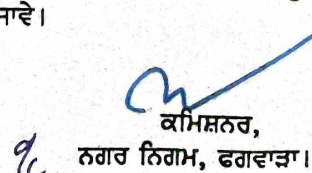 ਜਾਵੇ।
ਕਮਿਸ਼ਨਰ,
ਨਗਰ ਨਿਗਮ, ਫਗਵਾੜਾ।